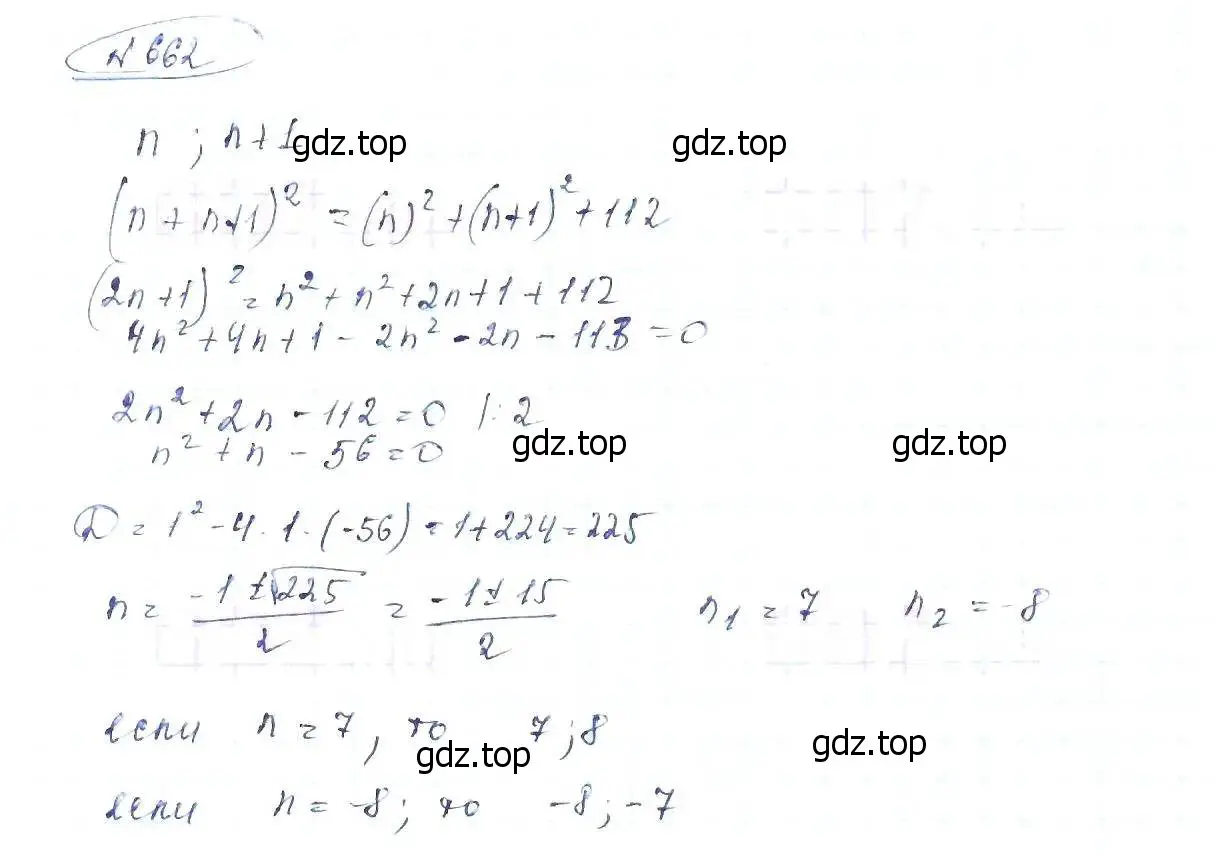 № 662
n ; n+1 gdz.top gdz.top
(n + n+1)² = (n)² + (n+1)² + 112
(2n+1)² = n² + n² + 2n + 1 + 112
4n² + 4n + 1 - 2n² - 2n - 113 = 0
2n² + 2n - 112 = 0 | : 2
n² + n - 56 = 0 gdz.top gdz.top
D = 1² - 4 · 1 · (-56) = 1 + 224 = 225
n = (-1 ± √225)/2 = (-1 ± 15)/2 n₁ = 7 n₂ = -8
если n = 7, то 7; 8
gdz.top gdz.top
если n = -8; то -8; -7